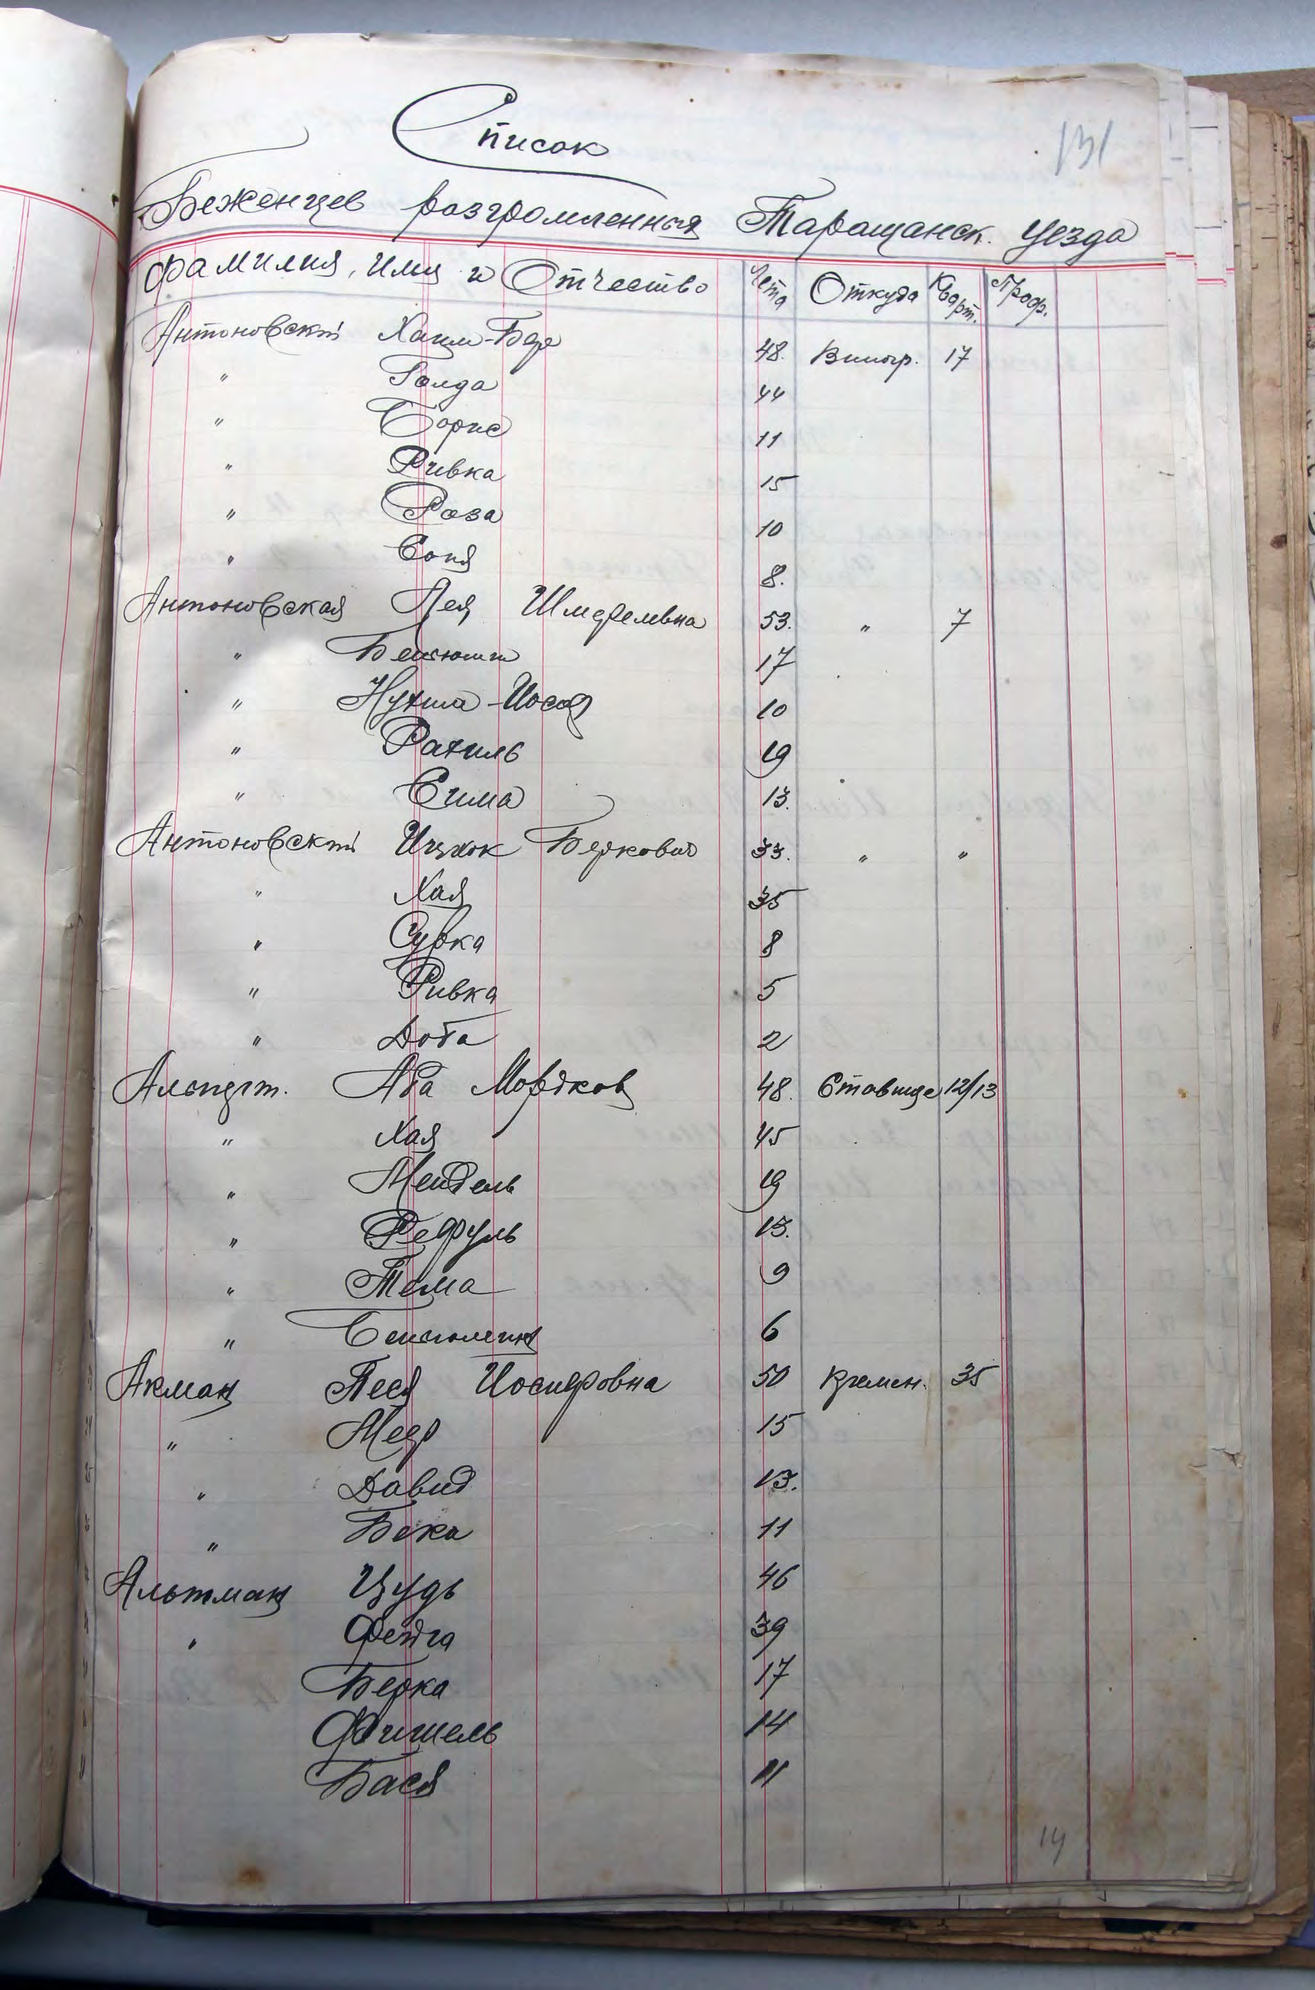 131
Список
Беженцев разгромленных Таращанск. Уезда
Фамилия, Имя и Отчество Лета Откуда Кварт. Проф.
Антоновский Хаим-Бер 48. Виногр. 17
" Голда 44
" Борис 11
" Ривка 15
" Роза 10
" Соня 8.
Антоновская Лея Шмерелевна 53. " 7
" 17
" Нухим-Иосф 10
" Рахиль 19
" Сима 13.
Антоновский Ицхок Беркович 33. " "
" Хая 35
" Сурка 8
" Ривка 5
" Доба 2
Аба Мордков 48. Ставище 12/13
" Хая 45
" Мендель 19
" Рефуль 13.
" Тема 9
" 6
Акман Песя Иосифовна 50 Кремен. 35
" Меер 15
" Давид 13.
" Бека 11
Альтман Цудь 46
" Фейга 39
Берка 17
Фишель 14
Бася 11
14